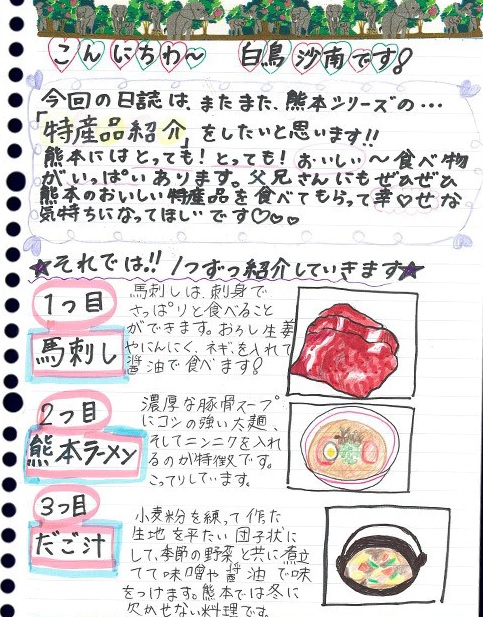 こんにちわ〜 白鳥沙南です!
今回の日誌は、またまた、熊本シリーズの…
「特産品紹介」をしたいと思います!!
熊本にはとっても!とっても!おいしい〜食べ物
がいっぱいあります。父兄さんにもぜひぜひ
熊本のおいしい特産品を食べてもらって幸♡せな
気持ちになってほしいです♡♡♡
★それでは!!1つずつ紹介していきます★
1つ目
馬刺し
馬刺しは、刺身で
さっぱりと食べること
ができます。おろし生姜
やにんにく、ネギ、を入れて
醤油で食べます!
2つ目
熊本ラーメン
濃厚な豚骨スープ
にコシの強い太麺、
そしてニンニクを入れ
るのが特徴です。
こってりしています。
3つ目
だご汁
小麦粉を練って作った
生地を平たい団子状に
して、季節の野菜と共に煮立
てて味噌や醤油で味
をつけます。熊本では冬に
欠かせない料理です。